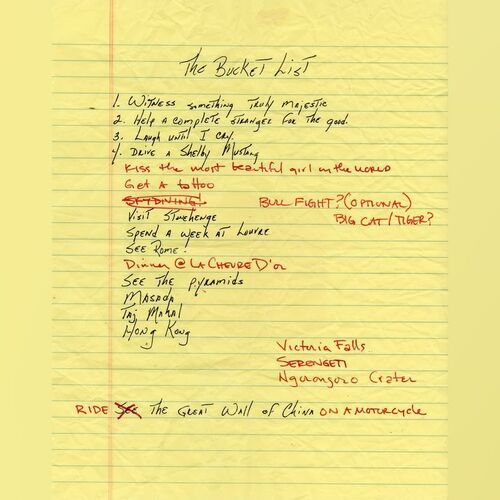 The Bucket List
1. Witness something Truly Majestic
2. Help a complete stranger for the good.
3. Laugh until I cry.
4. Drive a Shelby Mustang
Kiss the most beautiful girl in the world
Get a tattoo
SKYDIVING! BULL FIGHT? (OPTIONAL)
Visit Stonehenge BIG CAT/TIGER?
Spend a week at Louvre
See Rome!
Dinner @ LA CHEVRE D'or
See the pyramids
Masada
Taj Mahal
Hong Kong
Victoria Falls
SERENGETI
Ngorongoro Crater
RIDE See The Great Wall of China ON A MOTORCYCLE